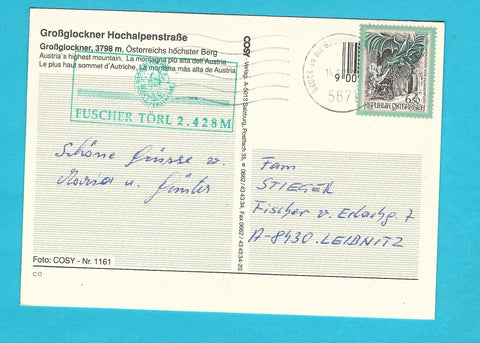 Großglockner Hochalpenstraße
Großglockner, 3798 m, Österreichs höchster Berg
Austria's highest mountain, La montagna piu alta dell'Austria
Le plus haut sommet d'Autriche, La montaña más alta de Austria
FUSCHER TÖRL 2.428M
Schöne Grüsse v.
Maria u. Günter
Foto: COSY - Nr. 1161
CO
COSY - Verlag, A-5013 Salzburg, Postfach 35, ☎ 0662 / 43 43 34, Fax 0662 / 43 43 34-20
BRUCK AN DER
9 00
567
6.50
REPUBLIK ÖSTERREICH
Fam
STIEGER
Fischer v. Erlachg. 7
A-8430 LEIBNITZ